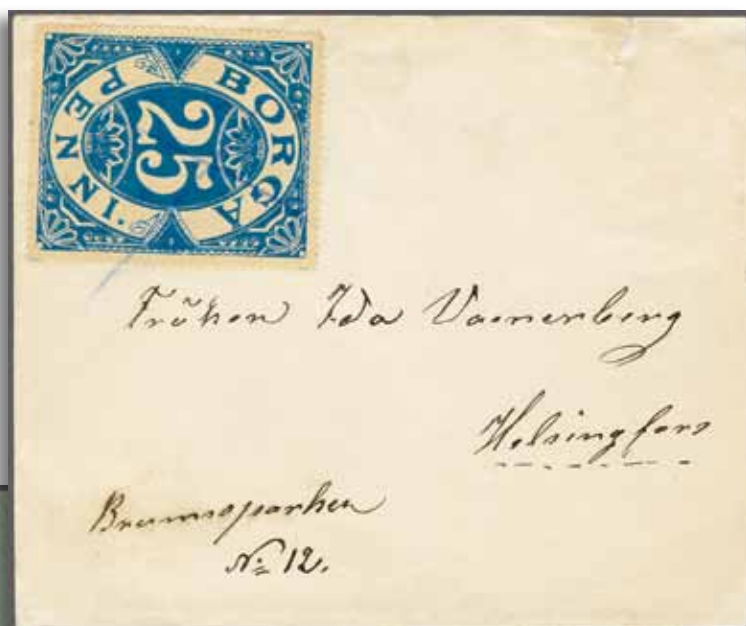 BORGÅ
25
PENNI.
Fröken Ida Wænerberg
Helsingfors
Brunnsparken
No 12.